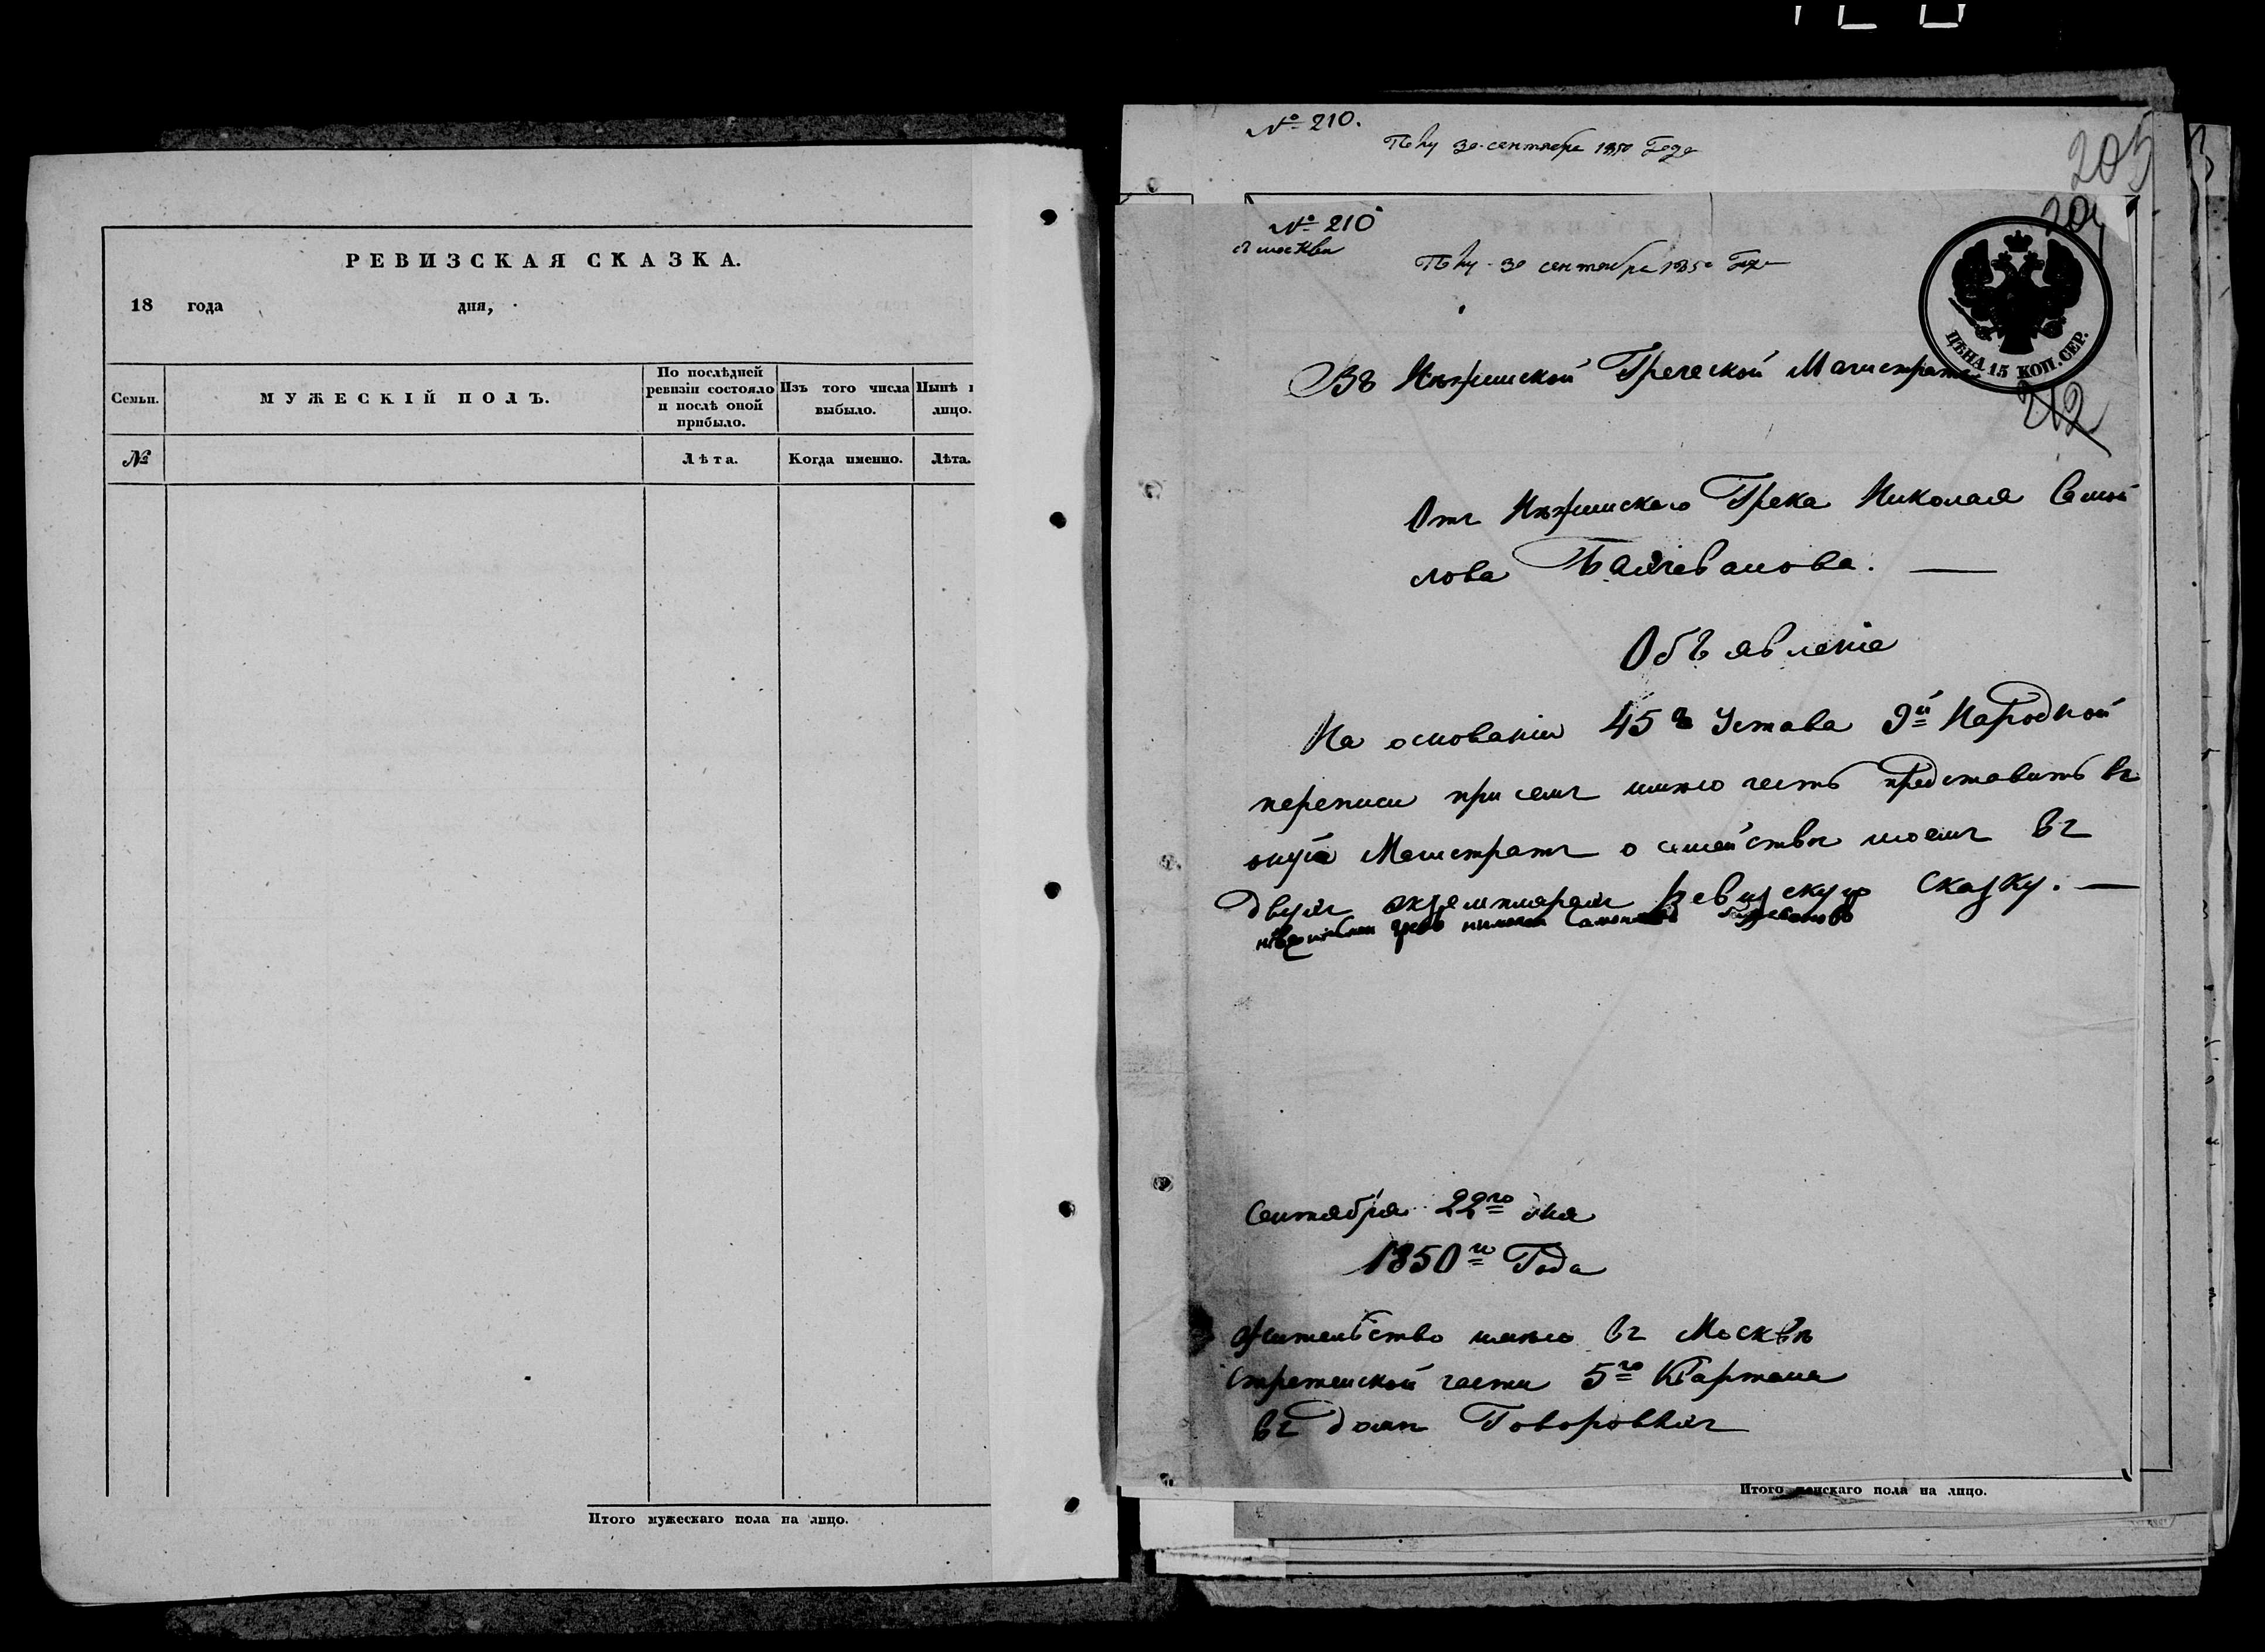 РЕВИЗСКАЯ СКАЗКА.
18 года дня,
Семьи.
МУЖЕСКІЙ ПОЛЪ.
По послѣдней ревизіи состояло и послѣ оной прибыло.
Изъ того числа выбыло.
Нынѣ
лицо.
№
Лѣта.
Когда именно.
Лѣта.
Итого мужескаго пола на лицо.
№ 210.
30 сентября 1850 Года
205
№ 210
съ москвы
30 сентября 1850 Года
204
ЦѢНА 15 КОП. СЕР.
212
Въ Нѣжинской Греческой Магистратъ
Отъ Нѣжинскаго Грека Николая Самой
лова
Объявленіе
На основаніи 45 Устава 9й Народной
переписи при семъ имѣю честь представить въ
оный Магистратъ о семействѣ моемъ въ
двухъ экземплярахъ Ревизскую Сказку. —
Сентября 22го дня
1850го Года
Жительство имѣю въ Москвѣ
Стретенской части 5го Квартала
въ Домѣ
Итого женскаго пола на лицо.